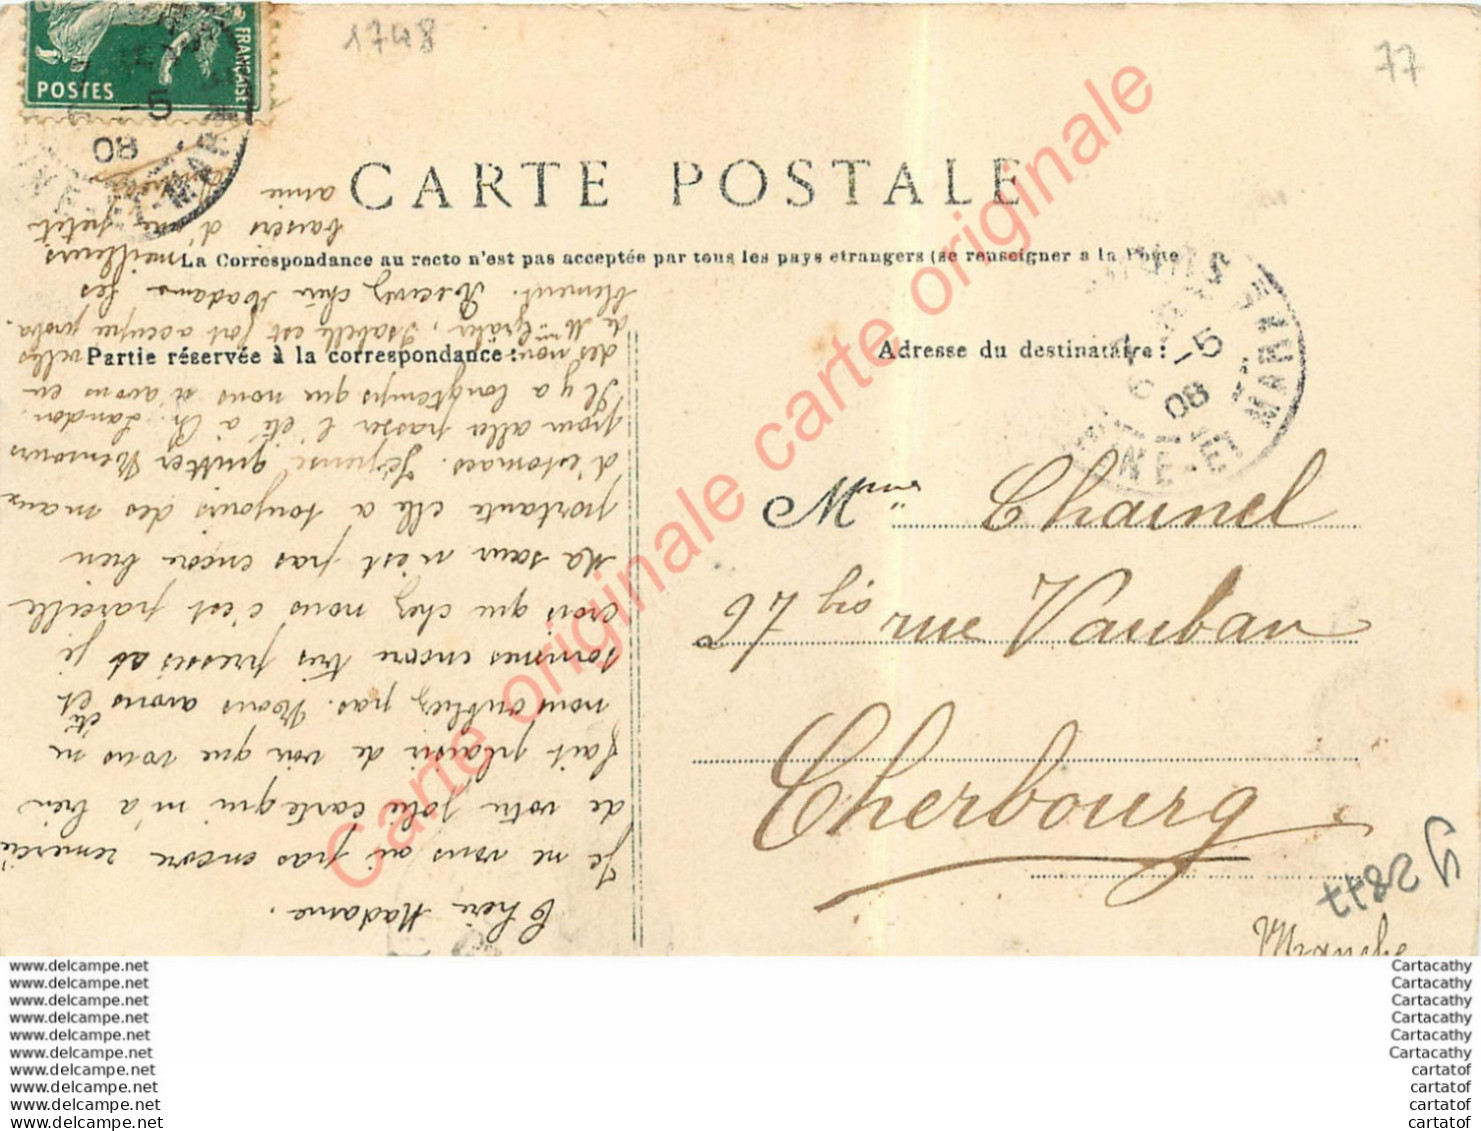 1748
77
POSTES
FRANÇAISE
-5
08
CARTE POSTALE
La Correspondance au recto n'est pas acceptée par tous les pays etrangers (se renseigner a la Poste
Partie réservée à la correspondance :
Adresse du destinataire :
-5
08
NE-ET MARNE
Chère Madame.
Je ne vous ai pas encore remercié
de votre jolie carte qui m'a bien
fait plaisir de voir que vous ne
nous oubliez pas. Nous avons été et
sommes encore très pressés et je
crois que chez nous c'est pareille
Ma sœur n'est pas encore bien
portante elle a toujours des maux
d'estomac. quitter Nemours
pour aller passer l'été à Ch. Landon.
Il y a longtemps que nous n'avons eu
des nouvelles
de Mme Isabelle est fort occupée proba-
blement. Recevez chère Madame les
meilleurs
baisers d'une petite
amie
Mme Chainel
27 bis rue Vauban
Cherbourg
Manche
Y2877
Carte originale carte originale carte originale
www.delcampe.net
www.delcampe.net
www.delcampe.net
www.delcampe.net
www.delcampe.net
www.delcampe.net
www.delcampe.net
www.delcampe.net
www.delcampe.net
www.delcampe.net
Cartacathy
Cartacathy
Cartacathy
Cartacathy
Cartacathy
Cartacathy
cartatof
cartatof
cartatof
cartatof